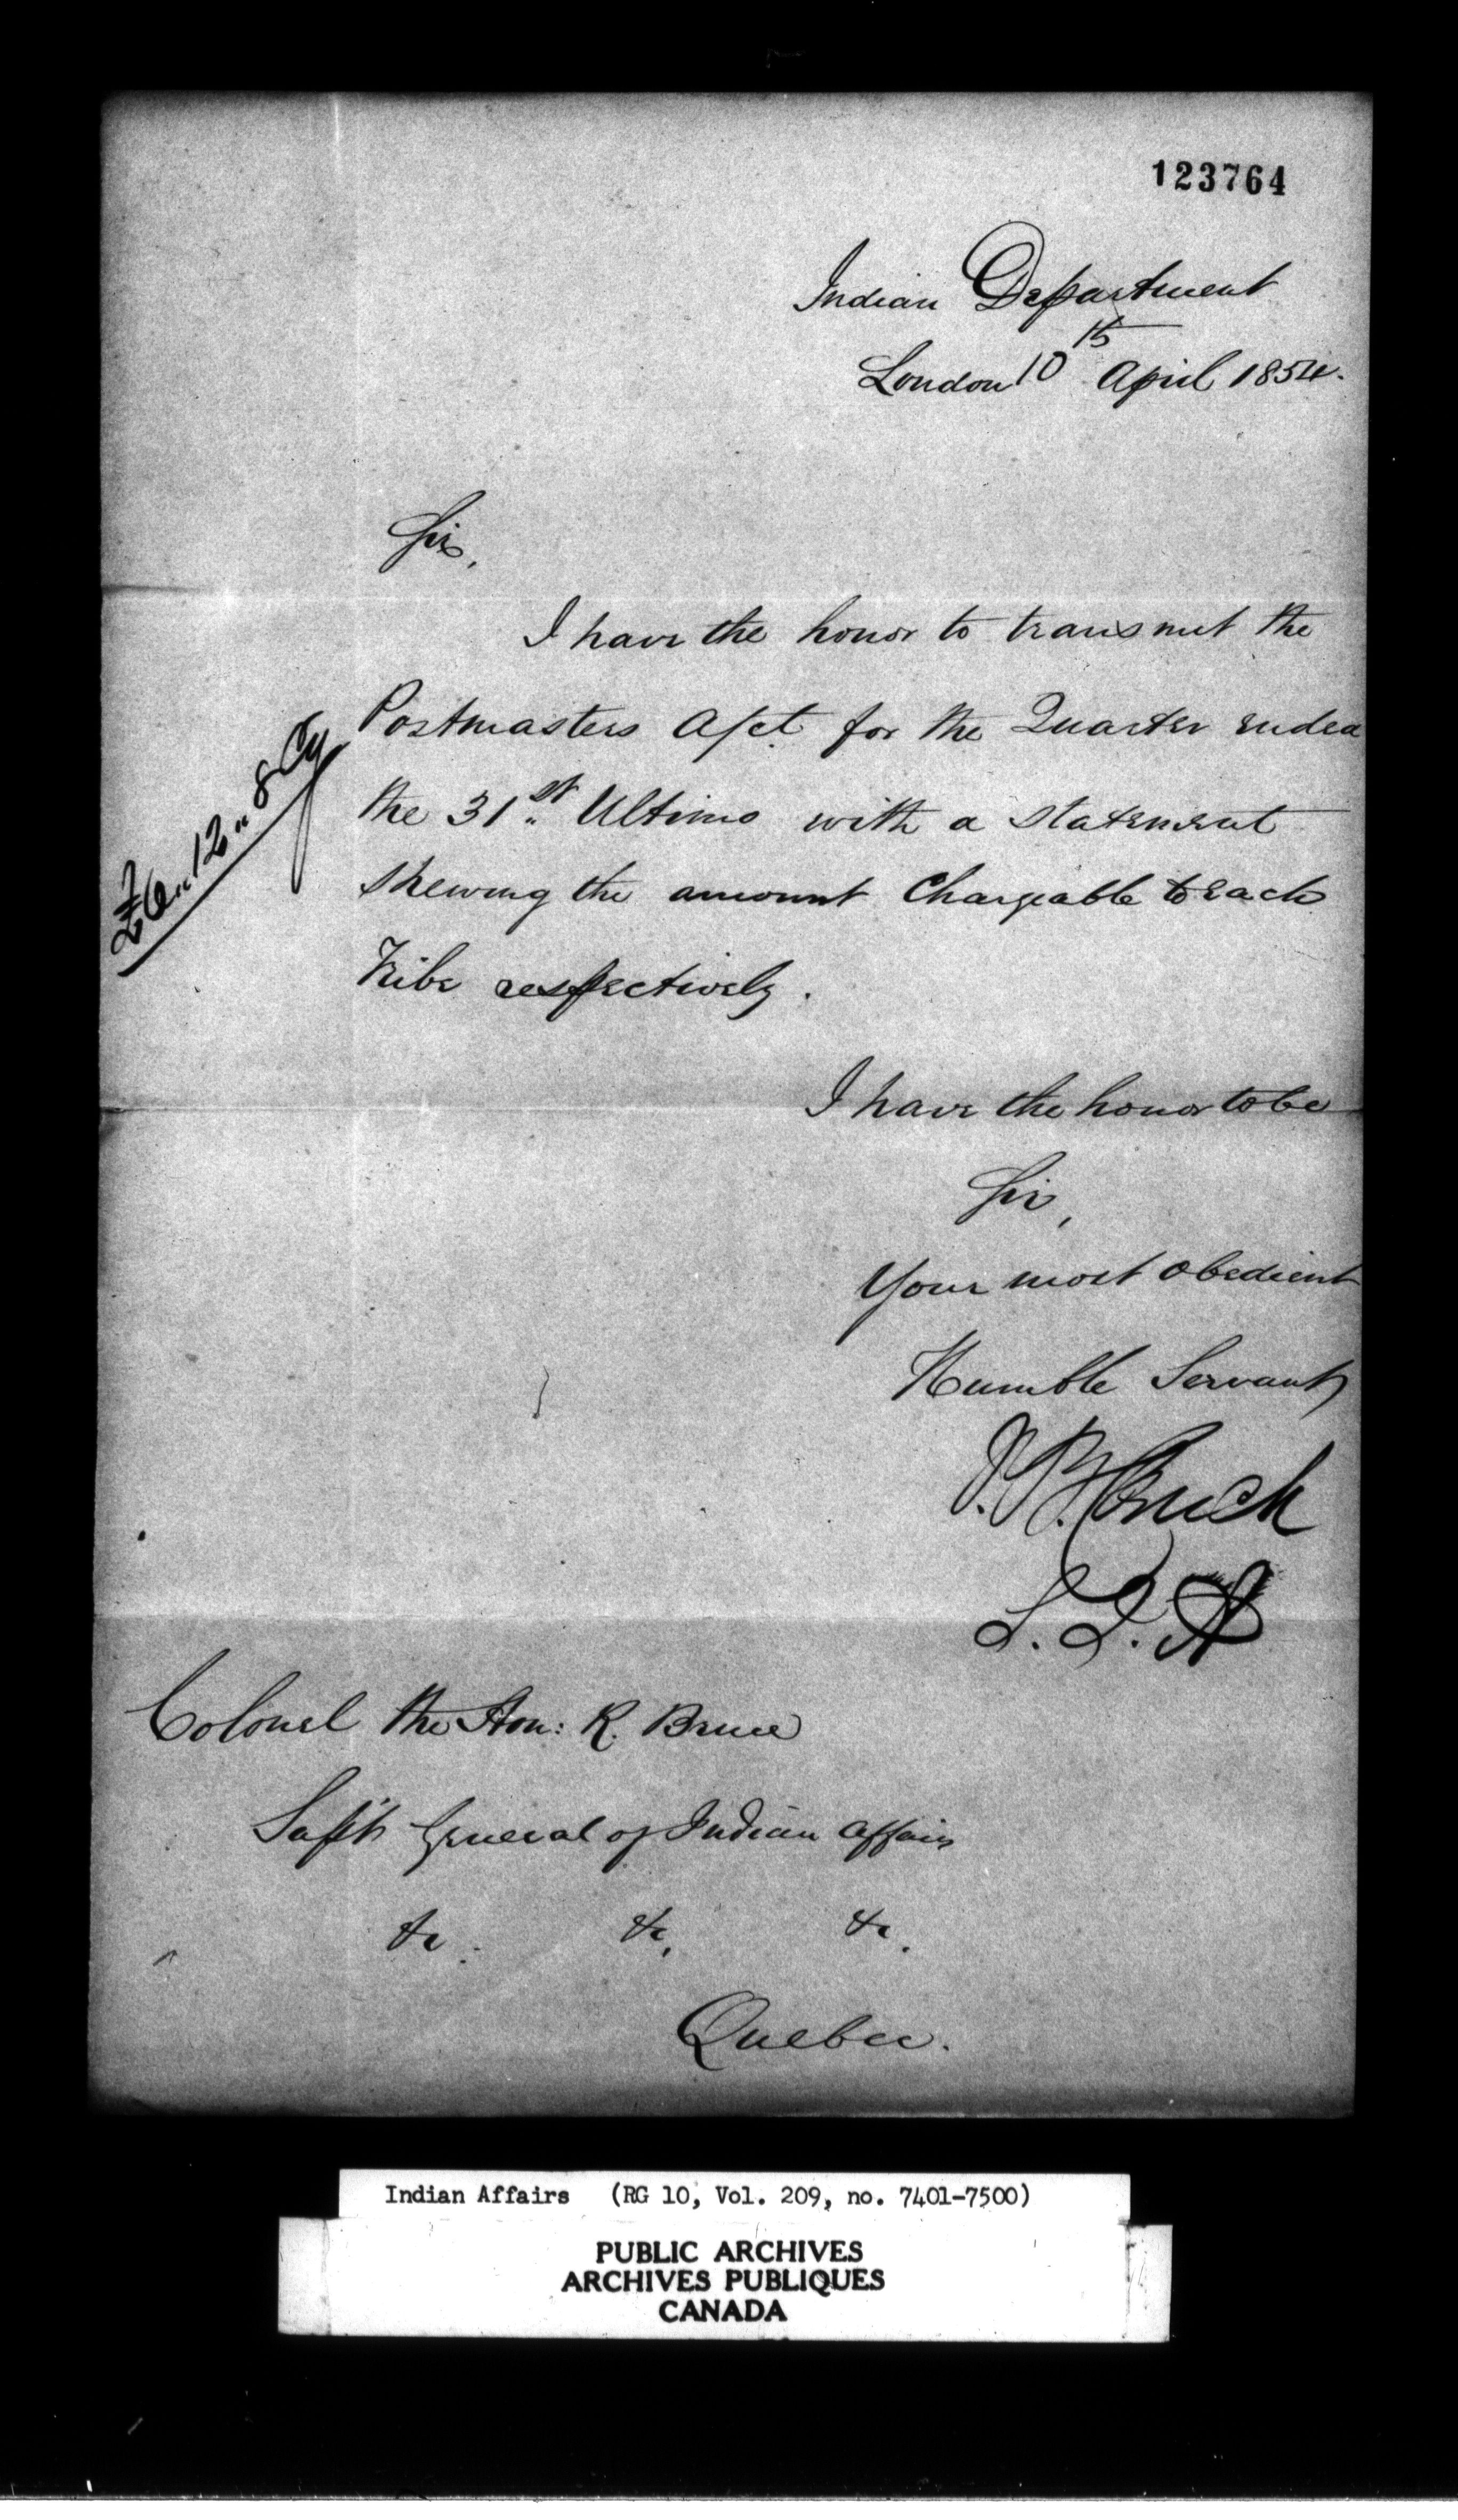 123764
Indian Department
London 10th April 1854.
Sir,
I have the honor to transmit the
Postmasters A/ct. for the Quarter ended
the 31st Ultimo with a statement
shewing the amount Chargeable to each
Tribe respectively.
£6 " 12 " 8 Cy
I have the honor to be
Sir,
Your most obedient
Humble Servant
S. I. A
Colonel the Hon: R. Bruce
Supt General of Indian Affairs
&c. &c. &c.
Quebec.
Indian Affairs (RG 10, Vol. 209, no. 7401-7500)
PUBLIC ARCHIVES
ARCHIVES PUBLIQUES
CANADA